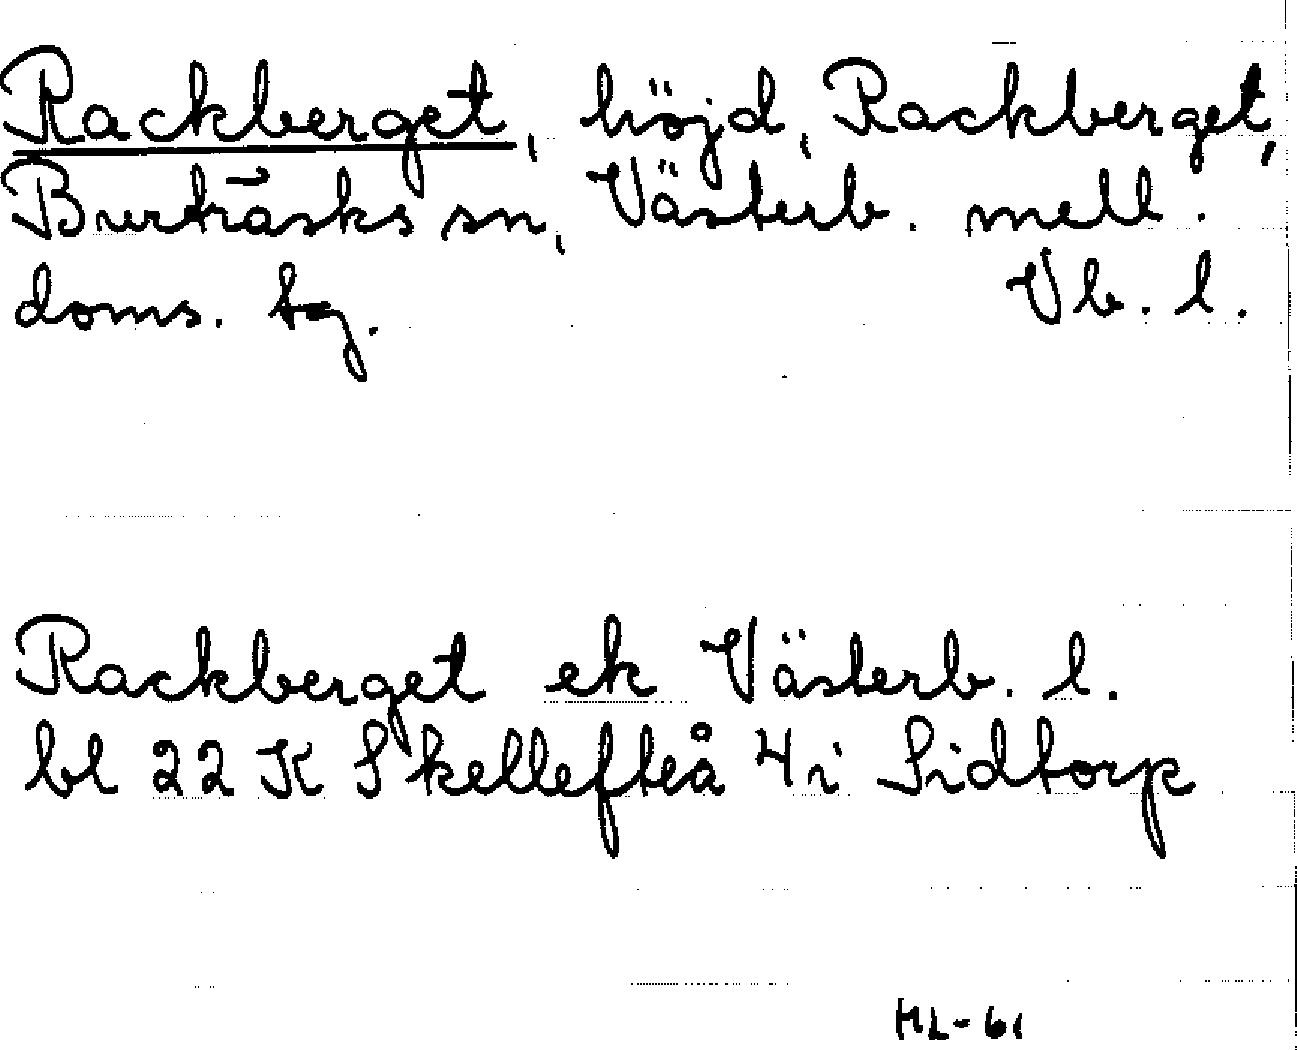 Rackberget, höjd, Rackberget,
Burträsks sn, Västerb. mell.
doms. tg. Vb. l.
Rackberget ek Västerb. l.
bl 22 K Skellefteå 4 i Sidtorp
HL-61